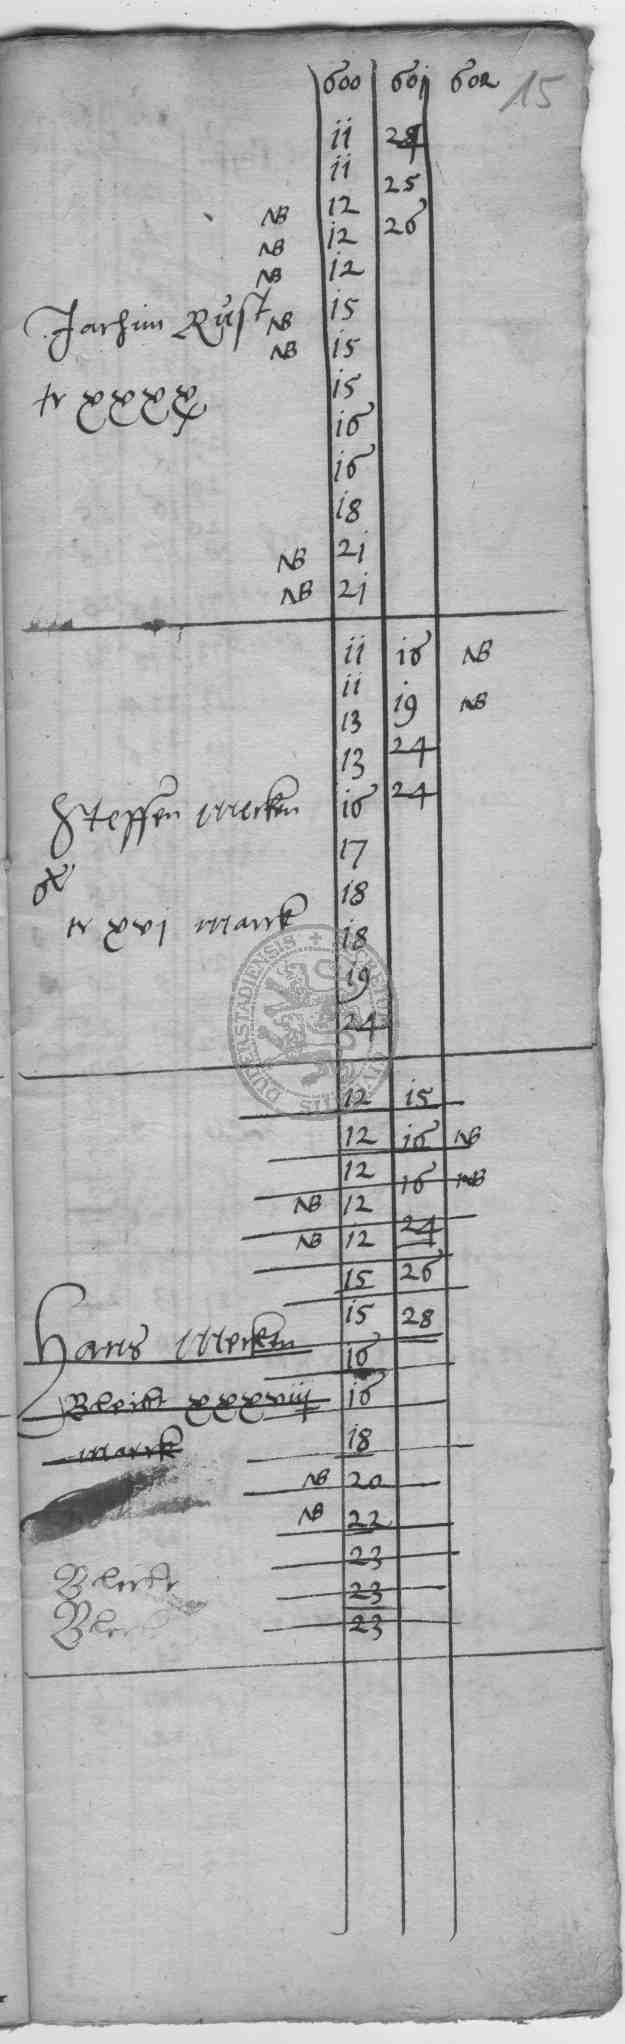 600 601 602 15
11 24
11 25
NB 12 26
NB 12
NB 12
Jachim Rust NB 15
NB 15
tr xxxx 15
16
16
18
NB 21
NB 21
11 16 NB
11 19 NB
13 24
13 24
Steffen Mecken 16
17
18
tr xvi marck 18
19
24
DUDERSTADIENSIS
12 15
12 16 NB
12 16 NB
NB 12 24
NB 12 26
15 28
15
Hans Mecken 16
Bleibt xxxviij 16
marck 18
NB 20
NB 22
23
Bleibt 23
23